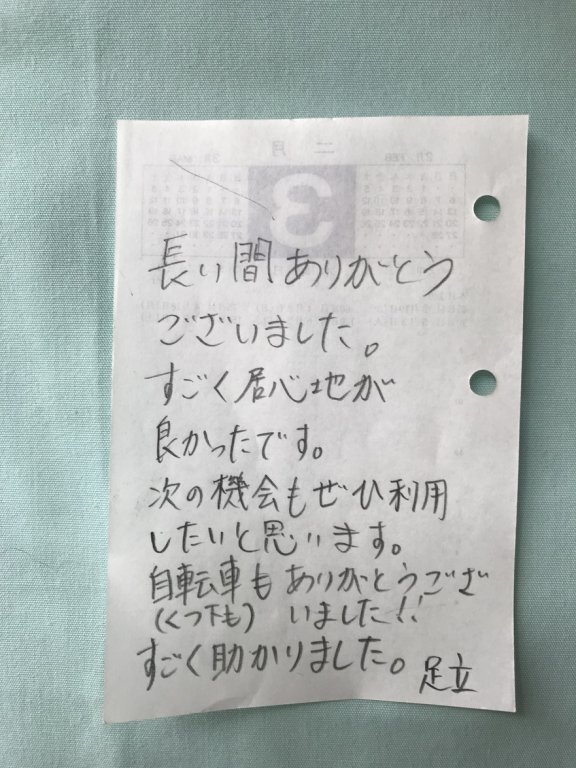 長い間ありがとう
ございました。
すごく居心地が
良かったです。
次の機会もぜひ利用
したいと思います。
自転車もありがとうござ
(くつ下も) いました!!
すごく助かりました。
足立